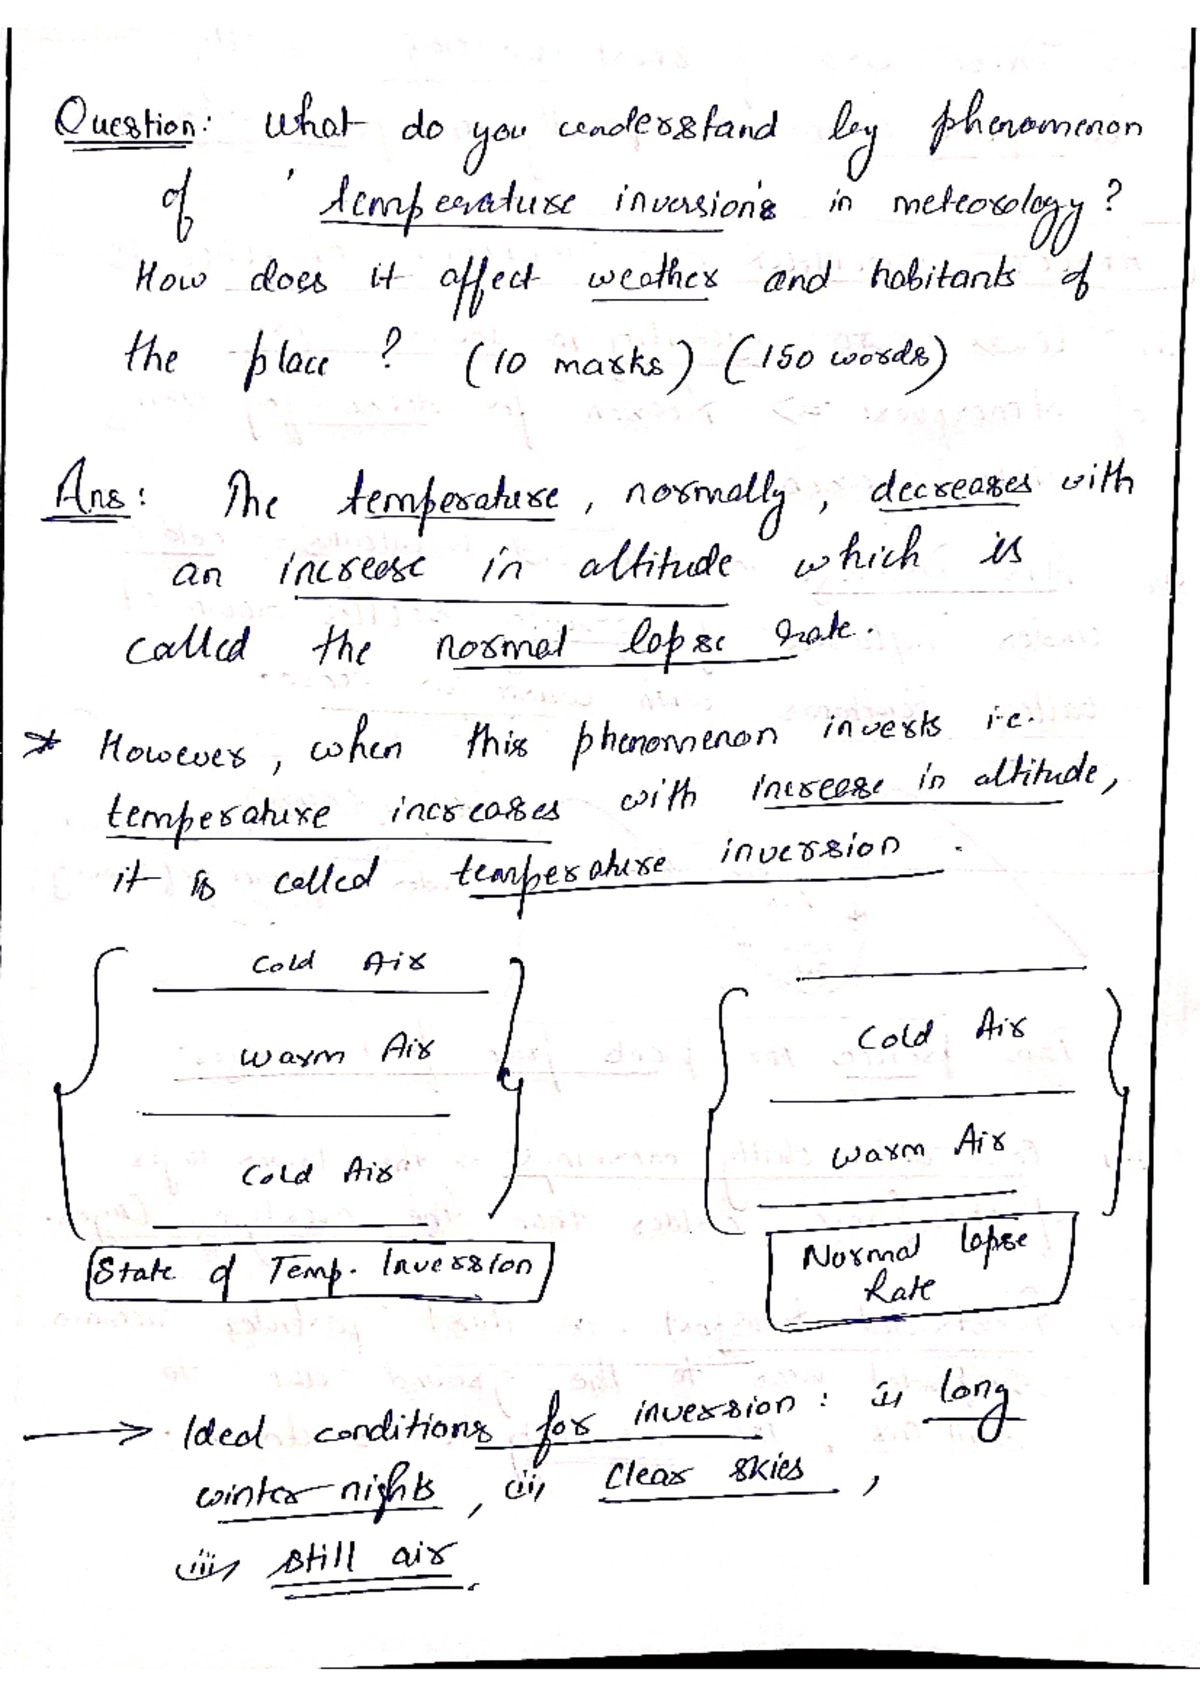 Question: What do you understand by phenomenon
of 'temperature inversions in meteorology?
How does it affect weather and habitants of
the place ? (10 marks) (150 words)
Ans: The temperature, normally, decreases with
an increase in altitude which is
called the normal lapse rate.
* However, when this phenomenon inverts i.e.
temperature increases with increase in altitude,
it is called temperature inversion.
Cold Air
Warm Air
Cold Air
State of Temp. Inversion
Cold Air
Warm Air
Normal lapse
Rate
→ Ideal conditions for inversion: i) long
winter nights, ii) Clear skies,
iii) still air.